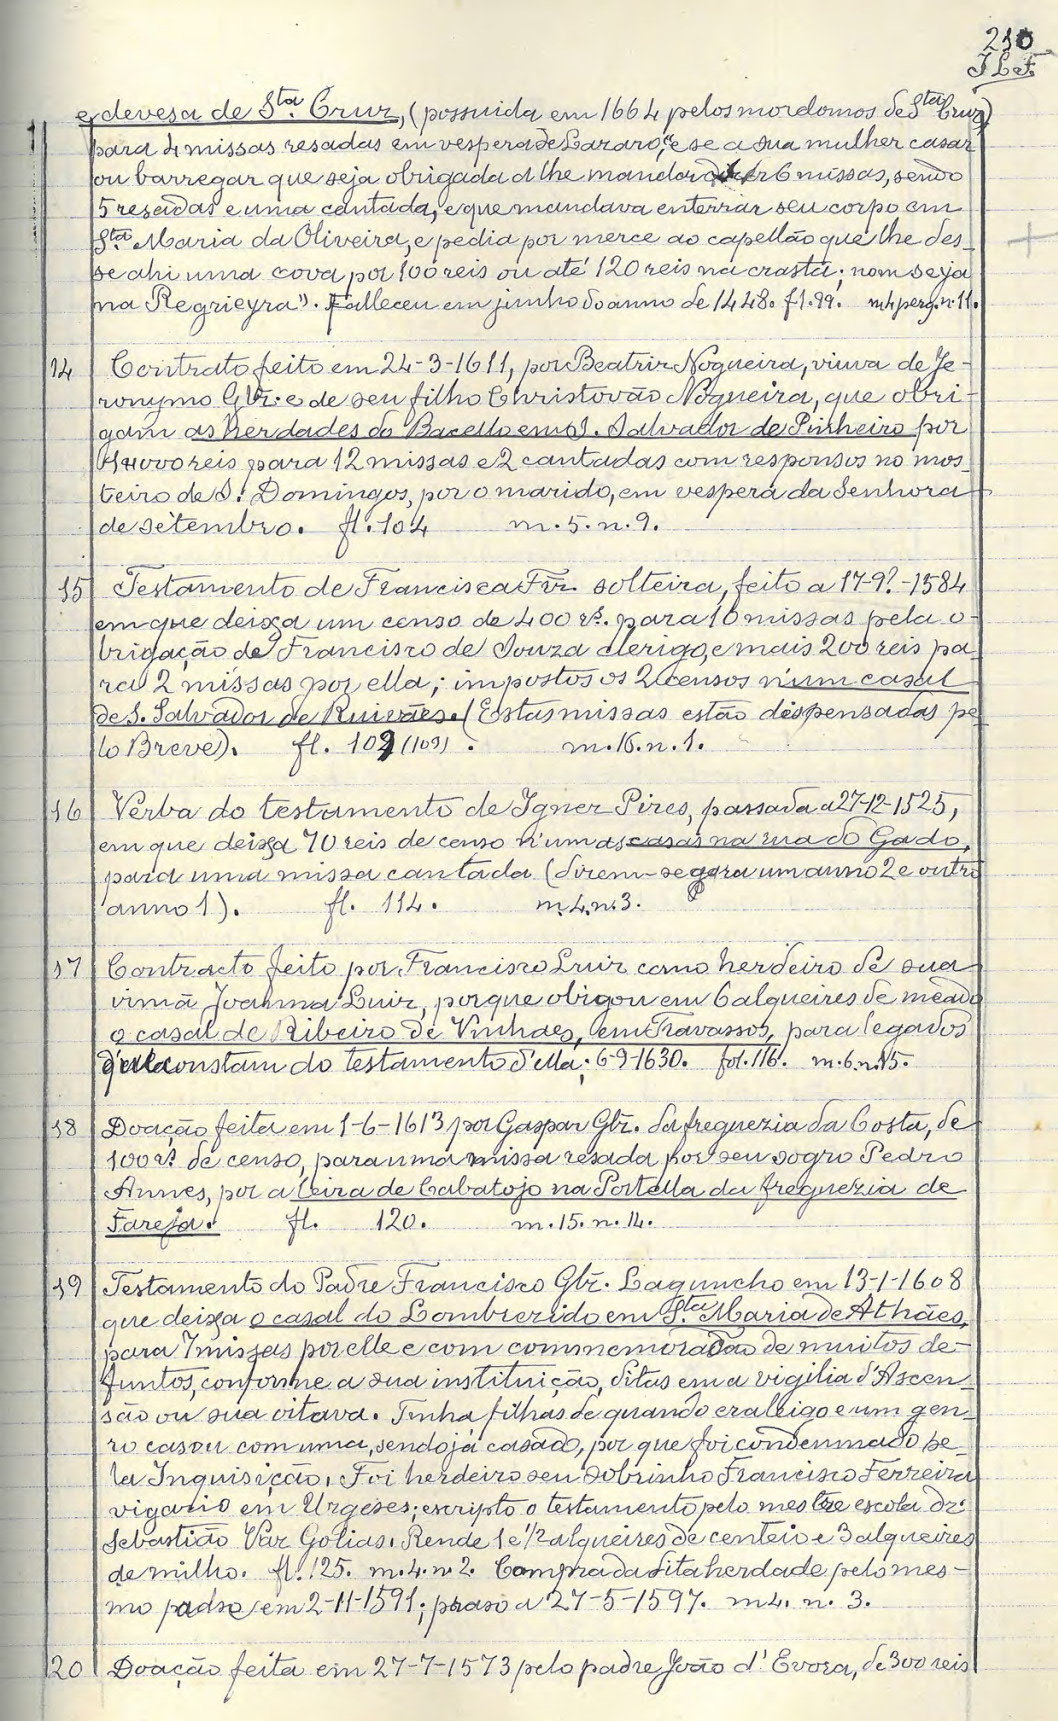 210
J L F
e devesa de Sta. Cruz, (possuida em 1664 pelos mordomos de Sta Cruz)
para 4 missas resadas em vespera de Lazaro, "e se a sua mulher casar
ou barregar que seja obrigada a lhe mandar dizer 6 missas, sendo
5 resadas e uma cantada, e que mandava enterrar seu corpo em
Sta. Maria da Oliveira, e pedia por merce ao capellão que lhe des-
se ahi uma cova por 100 reis ou até 120 reis na crasta; nom seja
na Regrieyra". Falleceu em junho do anno de 1448. fl. 99. m 4 perg. n. 11.
14 Contrato feito em 24-3-1611, por Beatriz Nogueira, viuva de Je-
ronymo Glz. e de seu filho Christovão Nogueira, que obri-
gam as herdades do Bacello em S. Salvador de Pinheiro por
reis para 12 missas e 2 cantadas com responsos no mos-
teiro de S. Domingos, por o marido, em vespera da Senhora
de setembro. fl. 104 m. 5. n. 9.
15 Testamento de Francisca Frz. solteira, feito a 17-9.-1584
em que deixa um censo de 400 rs. para 10 missas pela o-
brigação de Francisco de Souza clerigo, e mais 200 reis pa-
ra 2 missas por ella; impostos os 2 censos n'um casal
de S. Salvador de Ruivães. (Estas missas estão dispensadas pe-
lo Breve). fl. 109 (109). m. 16. n. 1.
16 Verba do testamento de Ignez Pires, passada a 27-12-1525,
em que deixa 70 reis de censo n'umas casas na rua do Gado,
para uma missa cantada (direm-se para um anno 2 e outro
anno 1). fl. 114. m. 4. n. 3.
17 Contracto feito por Francisco Luiz como herdeiro de sua
irmã Joanna Luiz, porque obigou em 6 alqueires de meado
o casal de Ribeiro de Vinhaes, em Travassos, para legados
que constam do testamento d'ella; 6-9-1630. fol. 116. m. 6. n. 15.
18 Doação feita em 1-6-1613 por Gaspar Glz. da freguezia da Costa, de
100 rs. de censo, para uma missa resada por seu sogro Pedro
Annes, por a leira de Cabatojo na Portella da freguezia de
Fareja. fl. 120. m. 15. n. 14.
19 Testamento do Padre Francisco Glz. Laguncho em 13-1-1608
que deixa o casal do Lombrezido em Sta. Maria de Athães,
para 7 missas por elle e com commemoração de muitos de-
funtos, conforme a sua instituição, ditas em a vigilia d'Ascen-
são ou sua oitava. Tinha filhas de quando era leigo e um gen-
ro casou com uma, sendo já casado, por que foi condemnado pe-
la Inquisição. Foi herdeiro seu sobrinho Francisco Ferreira
vigario em Urgeses; escripto o testamento pelo mestre escola dr.
Sebastião Vaz Golias. Rende 1 e 1/2 alqueires de centeio e 3 alqueires
de milho. fl. 125. m. 4. n. 2. Compra da dita herdade pelo mes-
mo padre em 2-11-1591; praso a 27-5-1597. m 4. n. 3.
20 Doação feita em 27-7-1573 pelo padre João d'Evora, de 300 reis